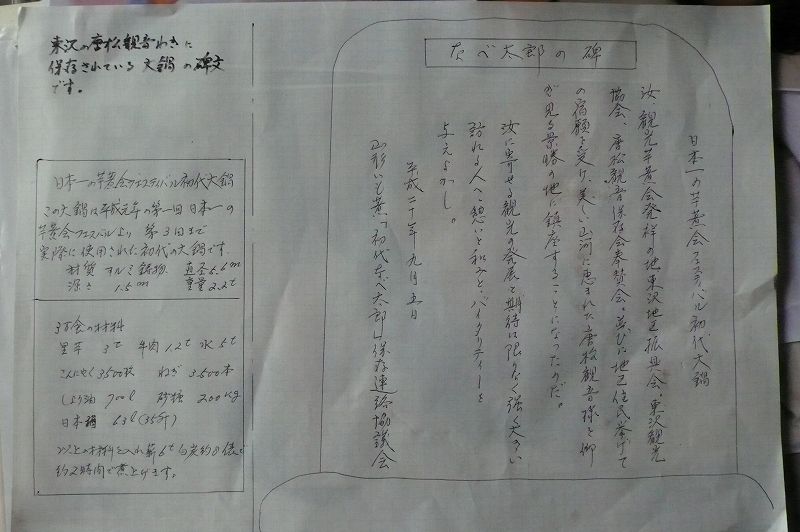 東沢の唐松観音わきに
保存されている 大鍋 の碑文
です。
日本一の芋煮会フェスティバル初代大鍋
この大鍋は平成元年の第一回 日本一の
芋煮会フェスバルより 第3回まで
実際に使用された初代の大鍋です。
材質 アルミ鋳物 直径5.6m
深さ 1.5m 重量2.2t
3万食の材料
里芋 3t 牛肉 1.2t 水 5t
こんにゃく3,500枚 ねぎ 3,500本
しょう油 700ℓ 砂糖 200kg
日本酒 63ℓ(35升)
以上の材料を入れ薪6t 白炭約8俵で
約2時間で煮上げます。
なべ太郎の碑
日本一の芋煮会フェスティバル初代大鍋
汝、観光芋煮会発祥の地東沢地区振興会、東沢観光
協会、唐松観音保存会奉賛会、並びに地区住民挙げて
の宿願を受け、美しい山河に恵まれた唐松観音様を仰
ぎ見る景勝の地に鎮座することになったのだ。
汝に寄せる観光の発展と期待は限りなく強く大きい
訪れる人へ憩いと和みと、バイタリティーを
与えよかし。
平成二十年九月五日
山形いも煮「初代なべ太郎」保存連絡協議会